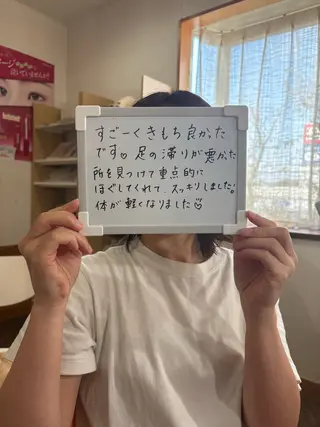 すごーくきもち良かった
です♡ 足の滞りが悪かった
所を見つけて重点的に
ほぐしてくれて、スッキリしました。
体が軽くなりました♡